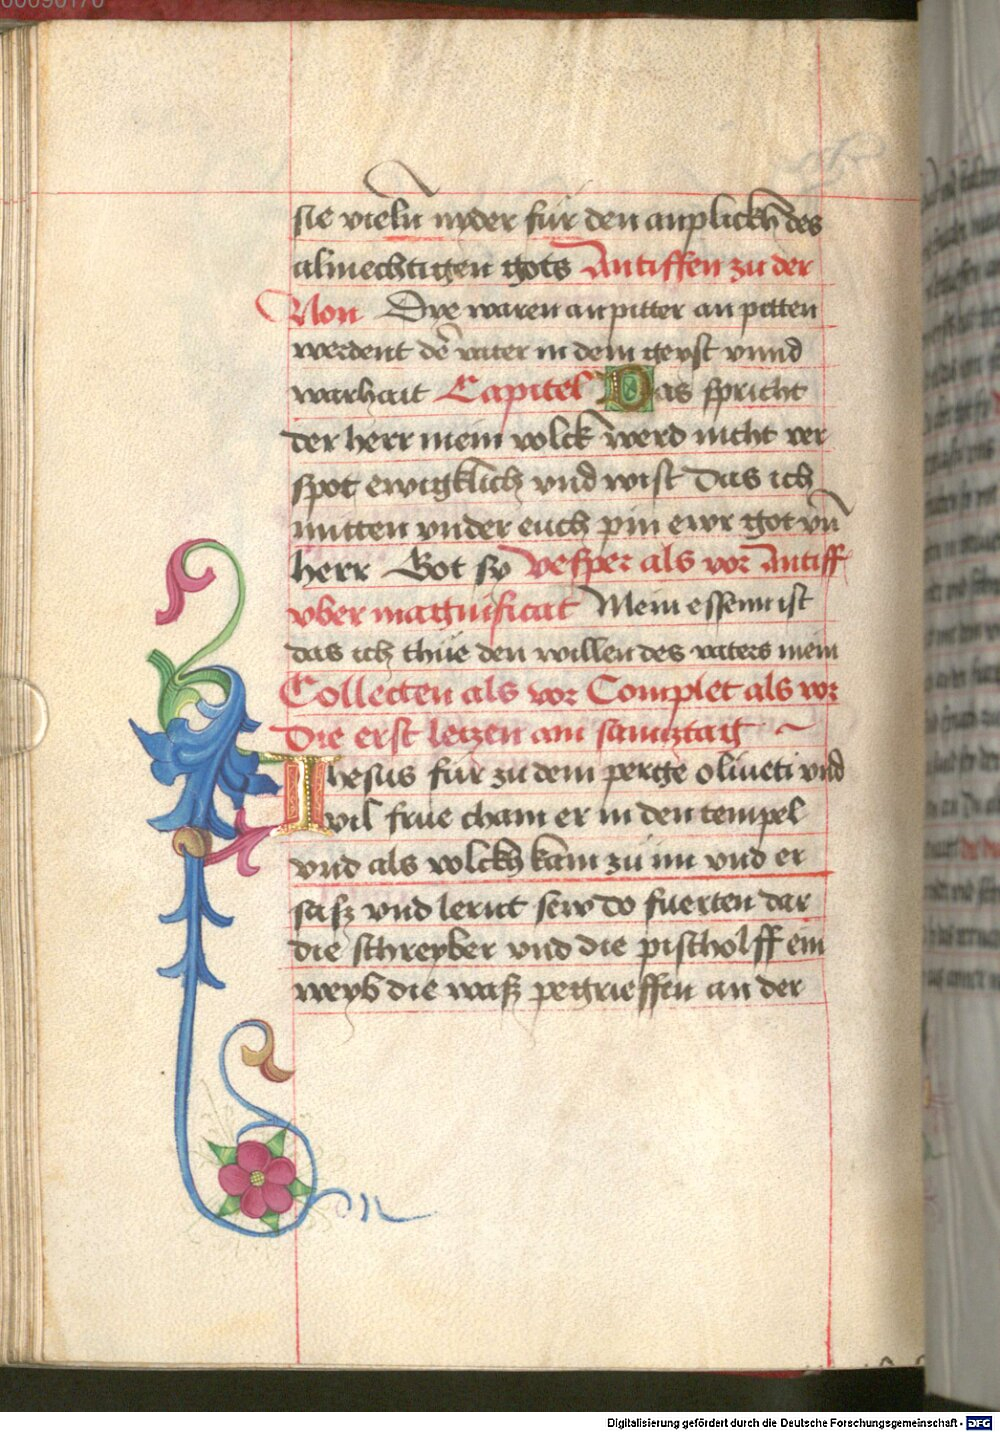 00090170
sie vieln̄ nyder für den anplickh des
almechtigen gots Antiffen zu der
Non Dye waren anpitter an petten
werdent dē vater in dem geyst vnnd
warhait Capitel Das spricht
der herr mein volck werd nicht ver
spot ewigklich vnd wist Das ich
mitten vnder euch pin ewr got vn̄
herr Got sy Vesper als vor Antiff
vber magnificat Mein essenn ist
das ich thüe den willen des vaters mein
Collecten als vor Complet als vor
Die erst letzen am samztag
Ihesus für zu dem perge oliueti vnd
vil frue cham er in den tempel
vnd als volckh kam zu im vnd er
sasz vnd lernt sew do fuerten dar
die schreyber vnd die pischolff ein
weyb die wasz pegrieffen an der
Digitalisierung gefördert durch die Deutsche Forschungsgemeinschaft - DFG